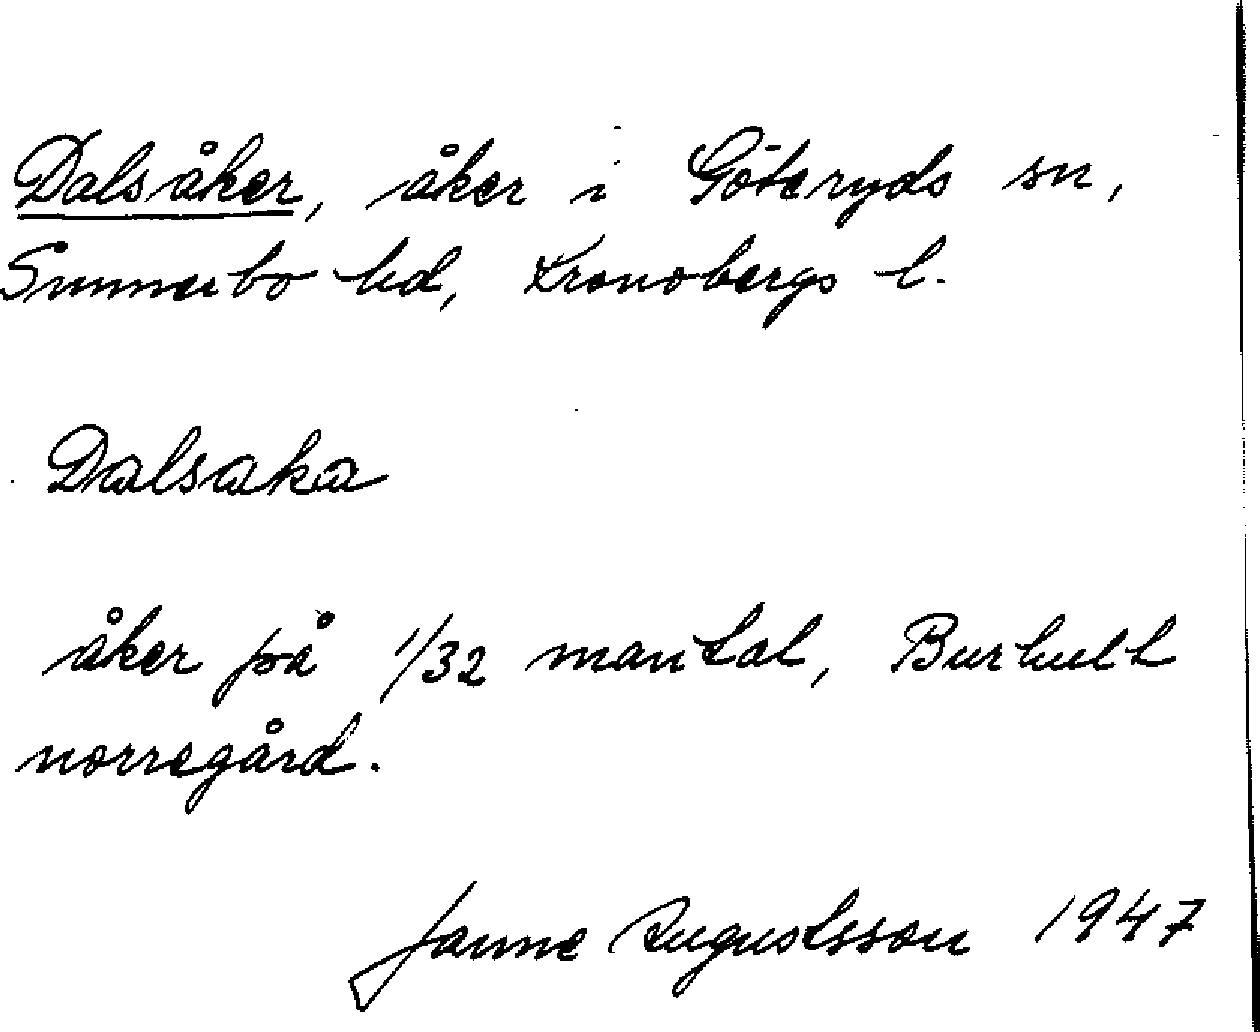 Dalsåker, åker i Göteryds sn,
Sunnerbo hd, Kronobergs l.
Dalsaka
åker på 1/32 mantal, Burhult
norregård.
Janne Augustsson 1947